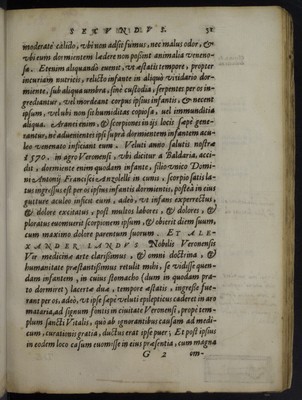 SECVNDVS. 51
moderatè calido, vbi non adsit fumus, nec malus odor, &
vbi eum dormientem lædere non possint animalia veneno-
sa. Etenim aliquando euenit, vt æstatis tempore, propter
incuriam nutricis, relicto infante in aliquo viridario dor-
miente, sub aliqua umbra, sine custodia, serpentes per os in-
grediantur, vel mordeant corpus ipsius infantis, & necent
ipsum, vel ubi non sit humiditas copiosa, vel immunditia
aliqua. Aranei enim, & scorpiones in ijs locis sæpè gene-
rantur, nè aduenientes ipsi suprà dormientem infantem acu-
leo venenato inficiant eum. Veluti anno salutis nostræ
1570. in agro Veronensi, vbi dicitur a Baldaria, acci-
dit, dormiente enim quodam infante, filio vnico Domi-
ni Antonij Francisci Anzolelli in cunis, scorpio satis la-
tus ingressus est per os ipsius infantis dormientis, postea in eius
gutture aculeo inficit eum, adeò, vt infans experrectus,
& dolore excitatus, post multos labores, & dolores, &
ploratus euomuerit scorpionem ipsum, & obierit diem suum,
cum maximo dolore parentum suorum. ET ALE-
XANDER LANDVS Nobilis Veronensis
Vir medicinæ arte clarissimus, & omni doctrina, &
humanitate præstantissimus retulit mihi, se vidisse quen-
dam infantem, in cuius stomacho (dum in quodam pra-
to dormiret) lacertæ duæ, tempore æstatis, ingressæ fue-
rant per os, adeò, vt ipse sæpè veluti epilepticus caderet in aro
mataria, ad signum fontis in ciuitate Veronensi, propè tem-
plum sancti Vitalis, quò ab ignorantibus causam ad medi-
cum, curationis gratia, ductus erat ipse puer; Et post ipsius
in eodem loco casum euomisse in eius præsentia, cum magna
G 2 vm-